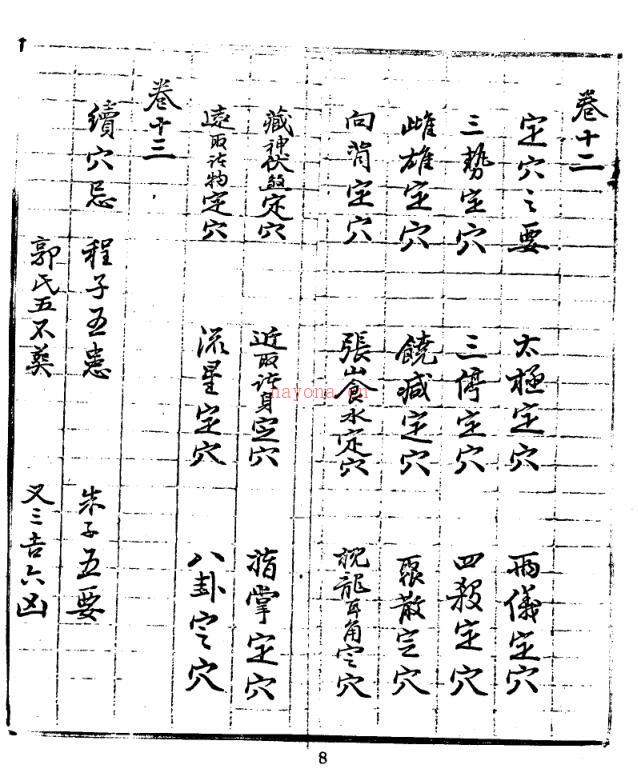 卷十二
定穴之要 太極定穴 兩儀定穴
三勢定穴 三停定穴 四殺定穴
雌雄定穴 饒減定穴 聚散定穴
向背定穴 張山食水定穴 視龍耳角定穴
藏神伏煞定穴 近取諸身定穴 指掌定穴
遠取諸物定穴 流星定穴 八卦定穴
卷十三
續穴忌 程子五患 朱子五要
郭氏五不葬 又三吉六凶
nayona.cn
8